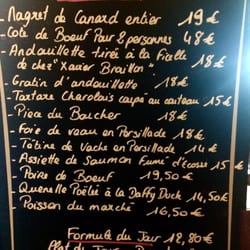 - Magret de Canard entier 19€
- Cote de Boeuf Pour 2 personnes 48€
- Andouillette tirée à la Ficelle
de chez "Xavier Braillon". 18€
- Gratin d'andouillette 18€
- Tartare Charolais coupé au couteau 15€
- Pièce du Boucher 18€
- Foie de veau en Persillade 18€
- Tétine de Vache en Persillade 14€
- Assiette de Saumon Fumé d'écosse 15€
- Poire de Boeuf 19,50€
- Quenelle Poêlée à la Daffy Duck 14,50€
- Poisson du marché 16,50€
Formule du Jour 12,80€
Plat du Jour